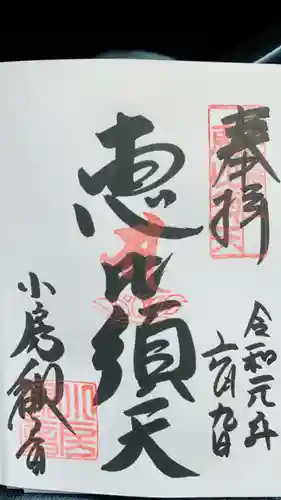 奉拝
令和元年
六月九日
恵比須天
小房観音